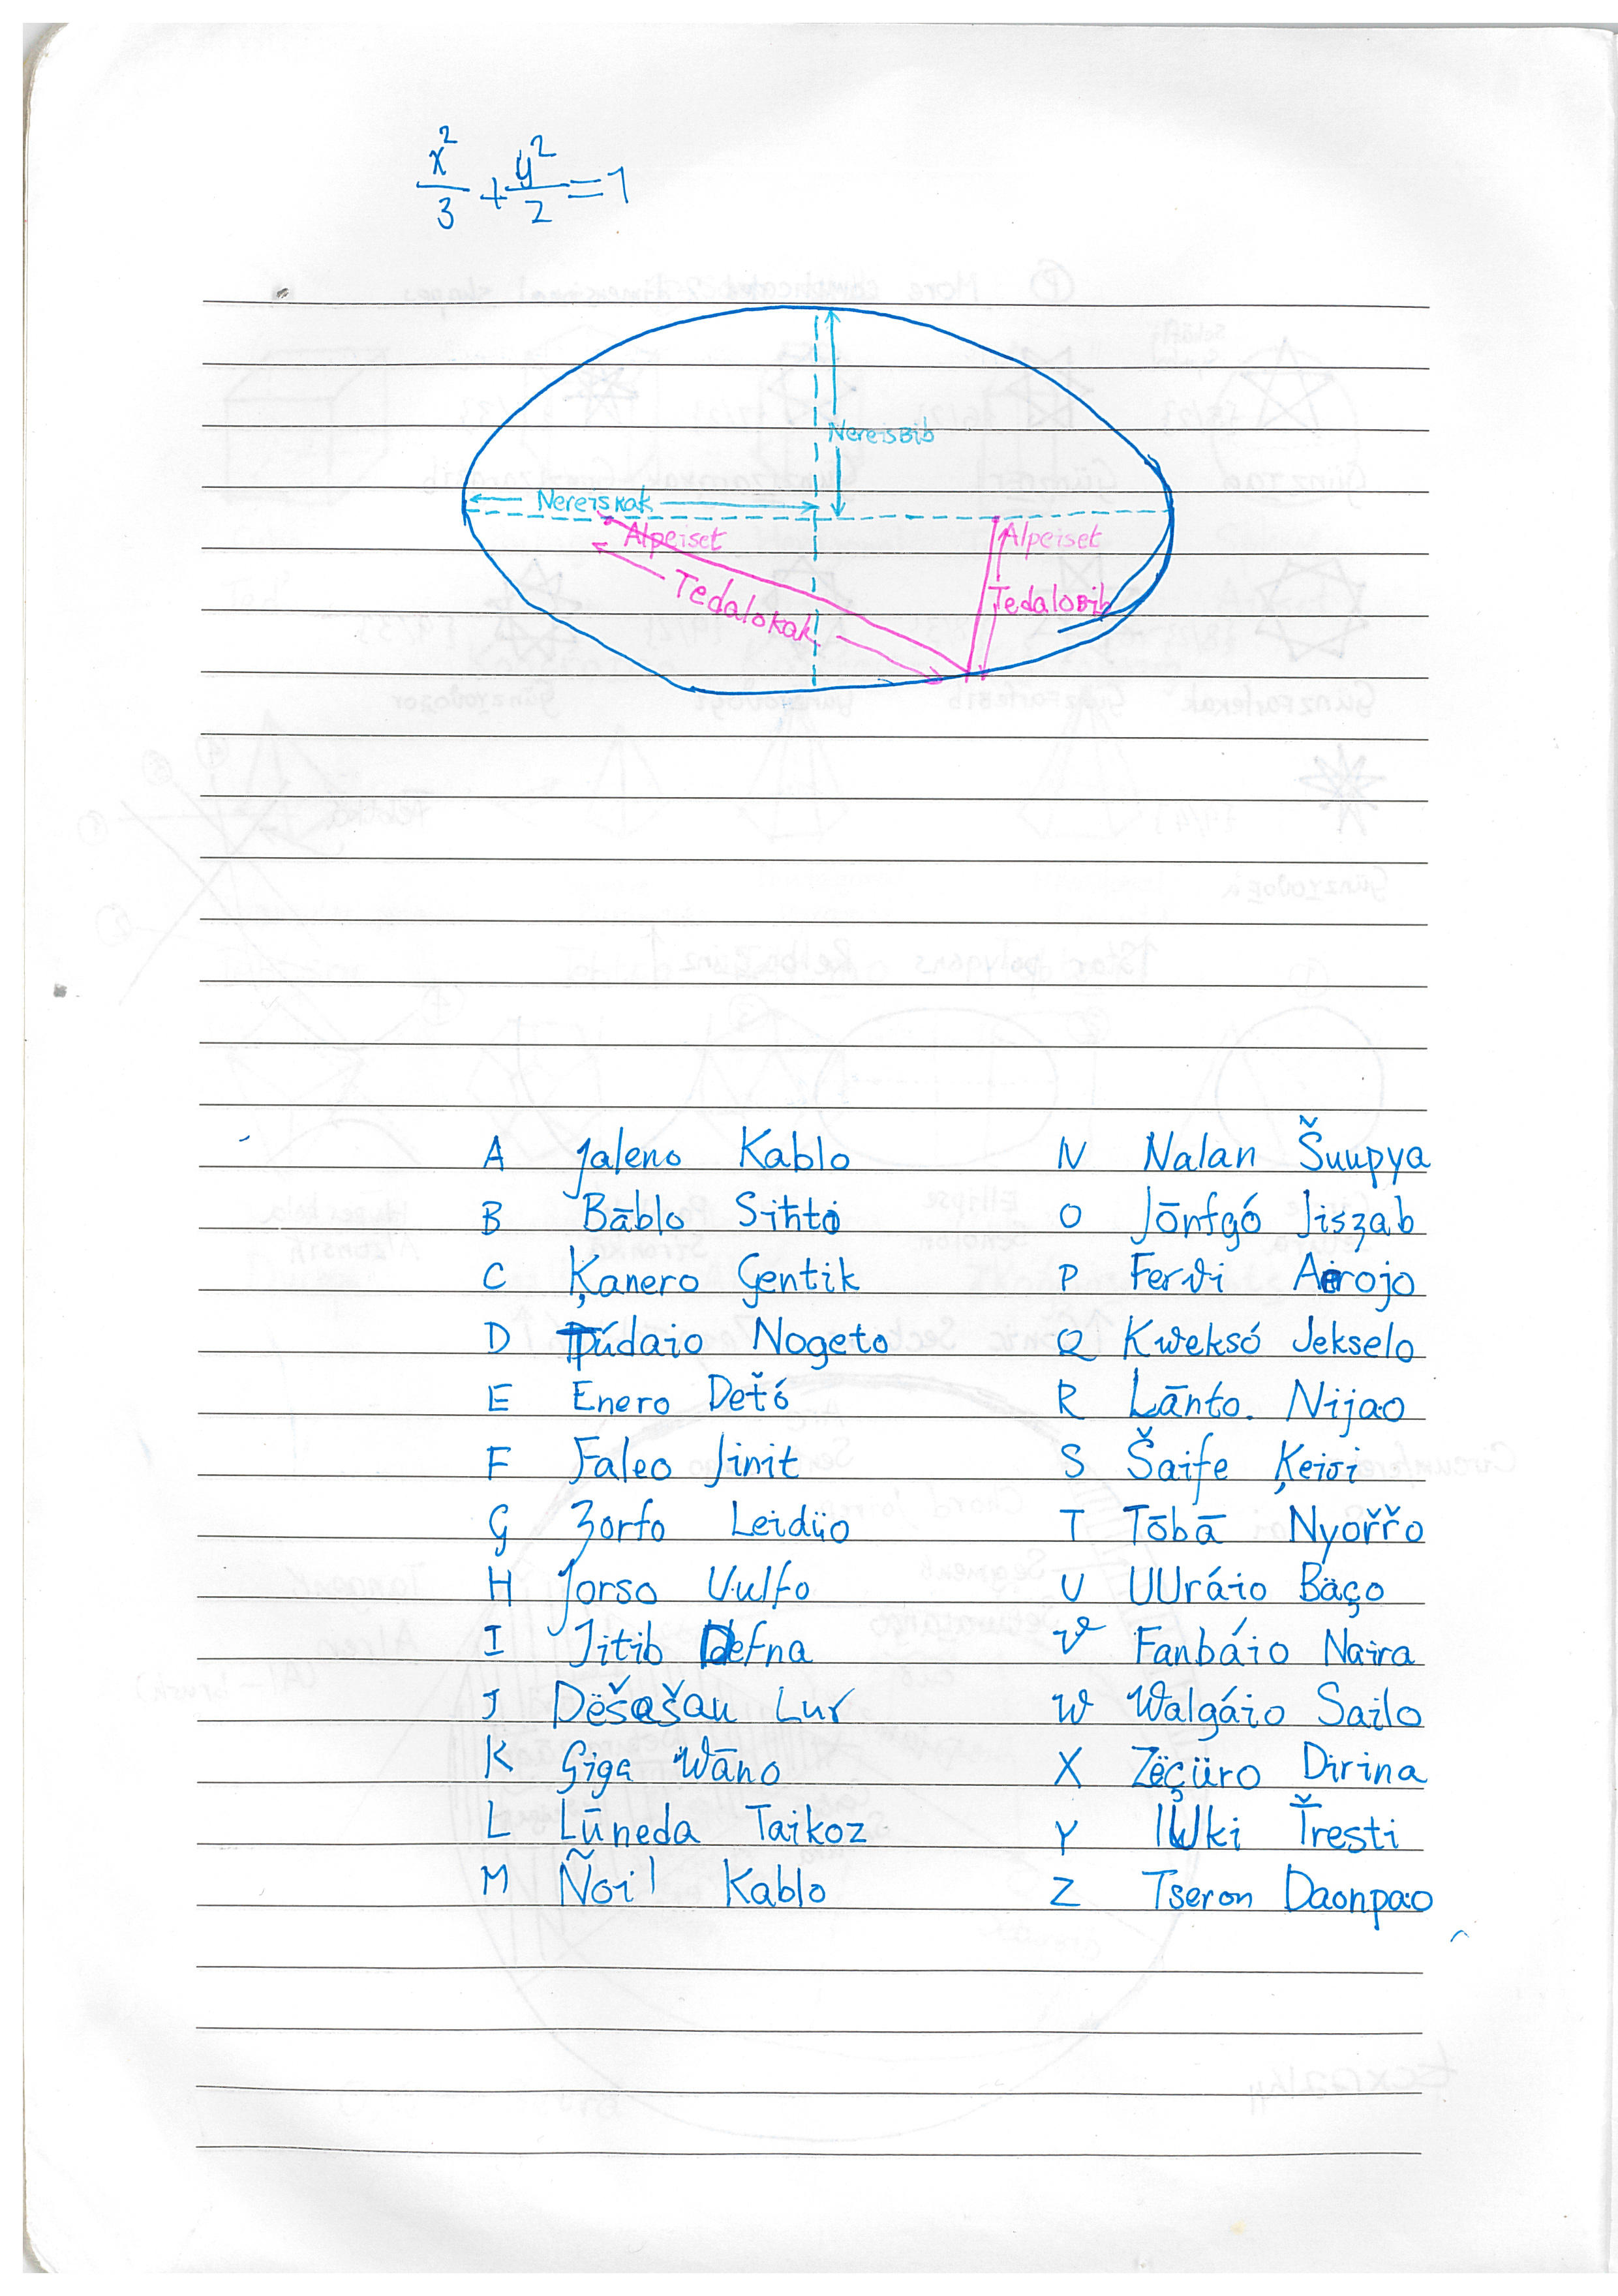 x²/3 + y²/2 = 1
Nereisbib
Nereiskak
Alpeiset
Alpeiset
Tedalokak
Tedalobib
A Jaleno Kablo
B Bāblo
C Ķanero Gentik
D Nogeto
E Enero Deťó
F Faleo Jinit
G Zorfo Leidüo
H Jorso Vulfo
I Jitib Defna
J Dëšašau Lur
K Giga Wāno
L Lūneda Taikoz
M Ñoil Kablo
N Nalan Šuupya
O Jōnfgó Jiszab
P Fervi Aerojo
Q Kweksó Jekselo
R Lānto. Nijao
S Šaife Ķeisi
T Tōbā Nyořřo
U UUráio Bäço
V Fanbáio Naira
W Walgáio Sailo
X Zëçüro Dirina
Y Třesti
Z Tseron Daonpao